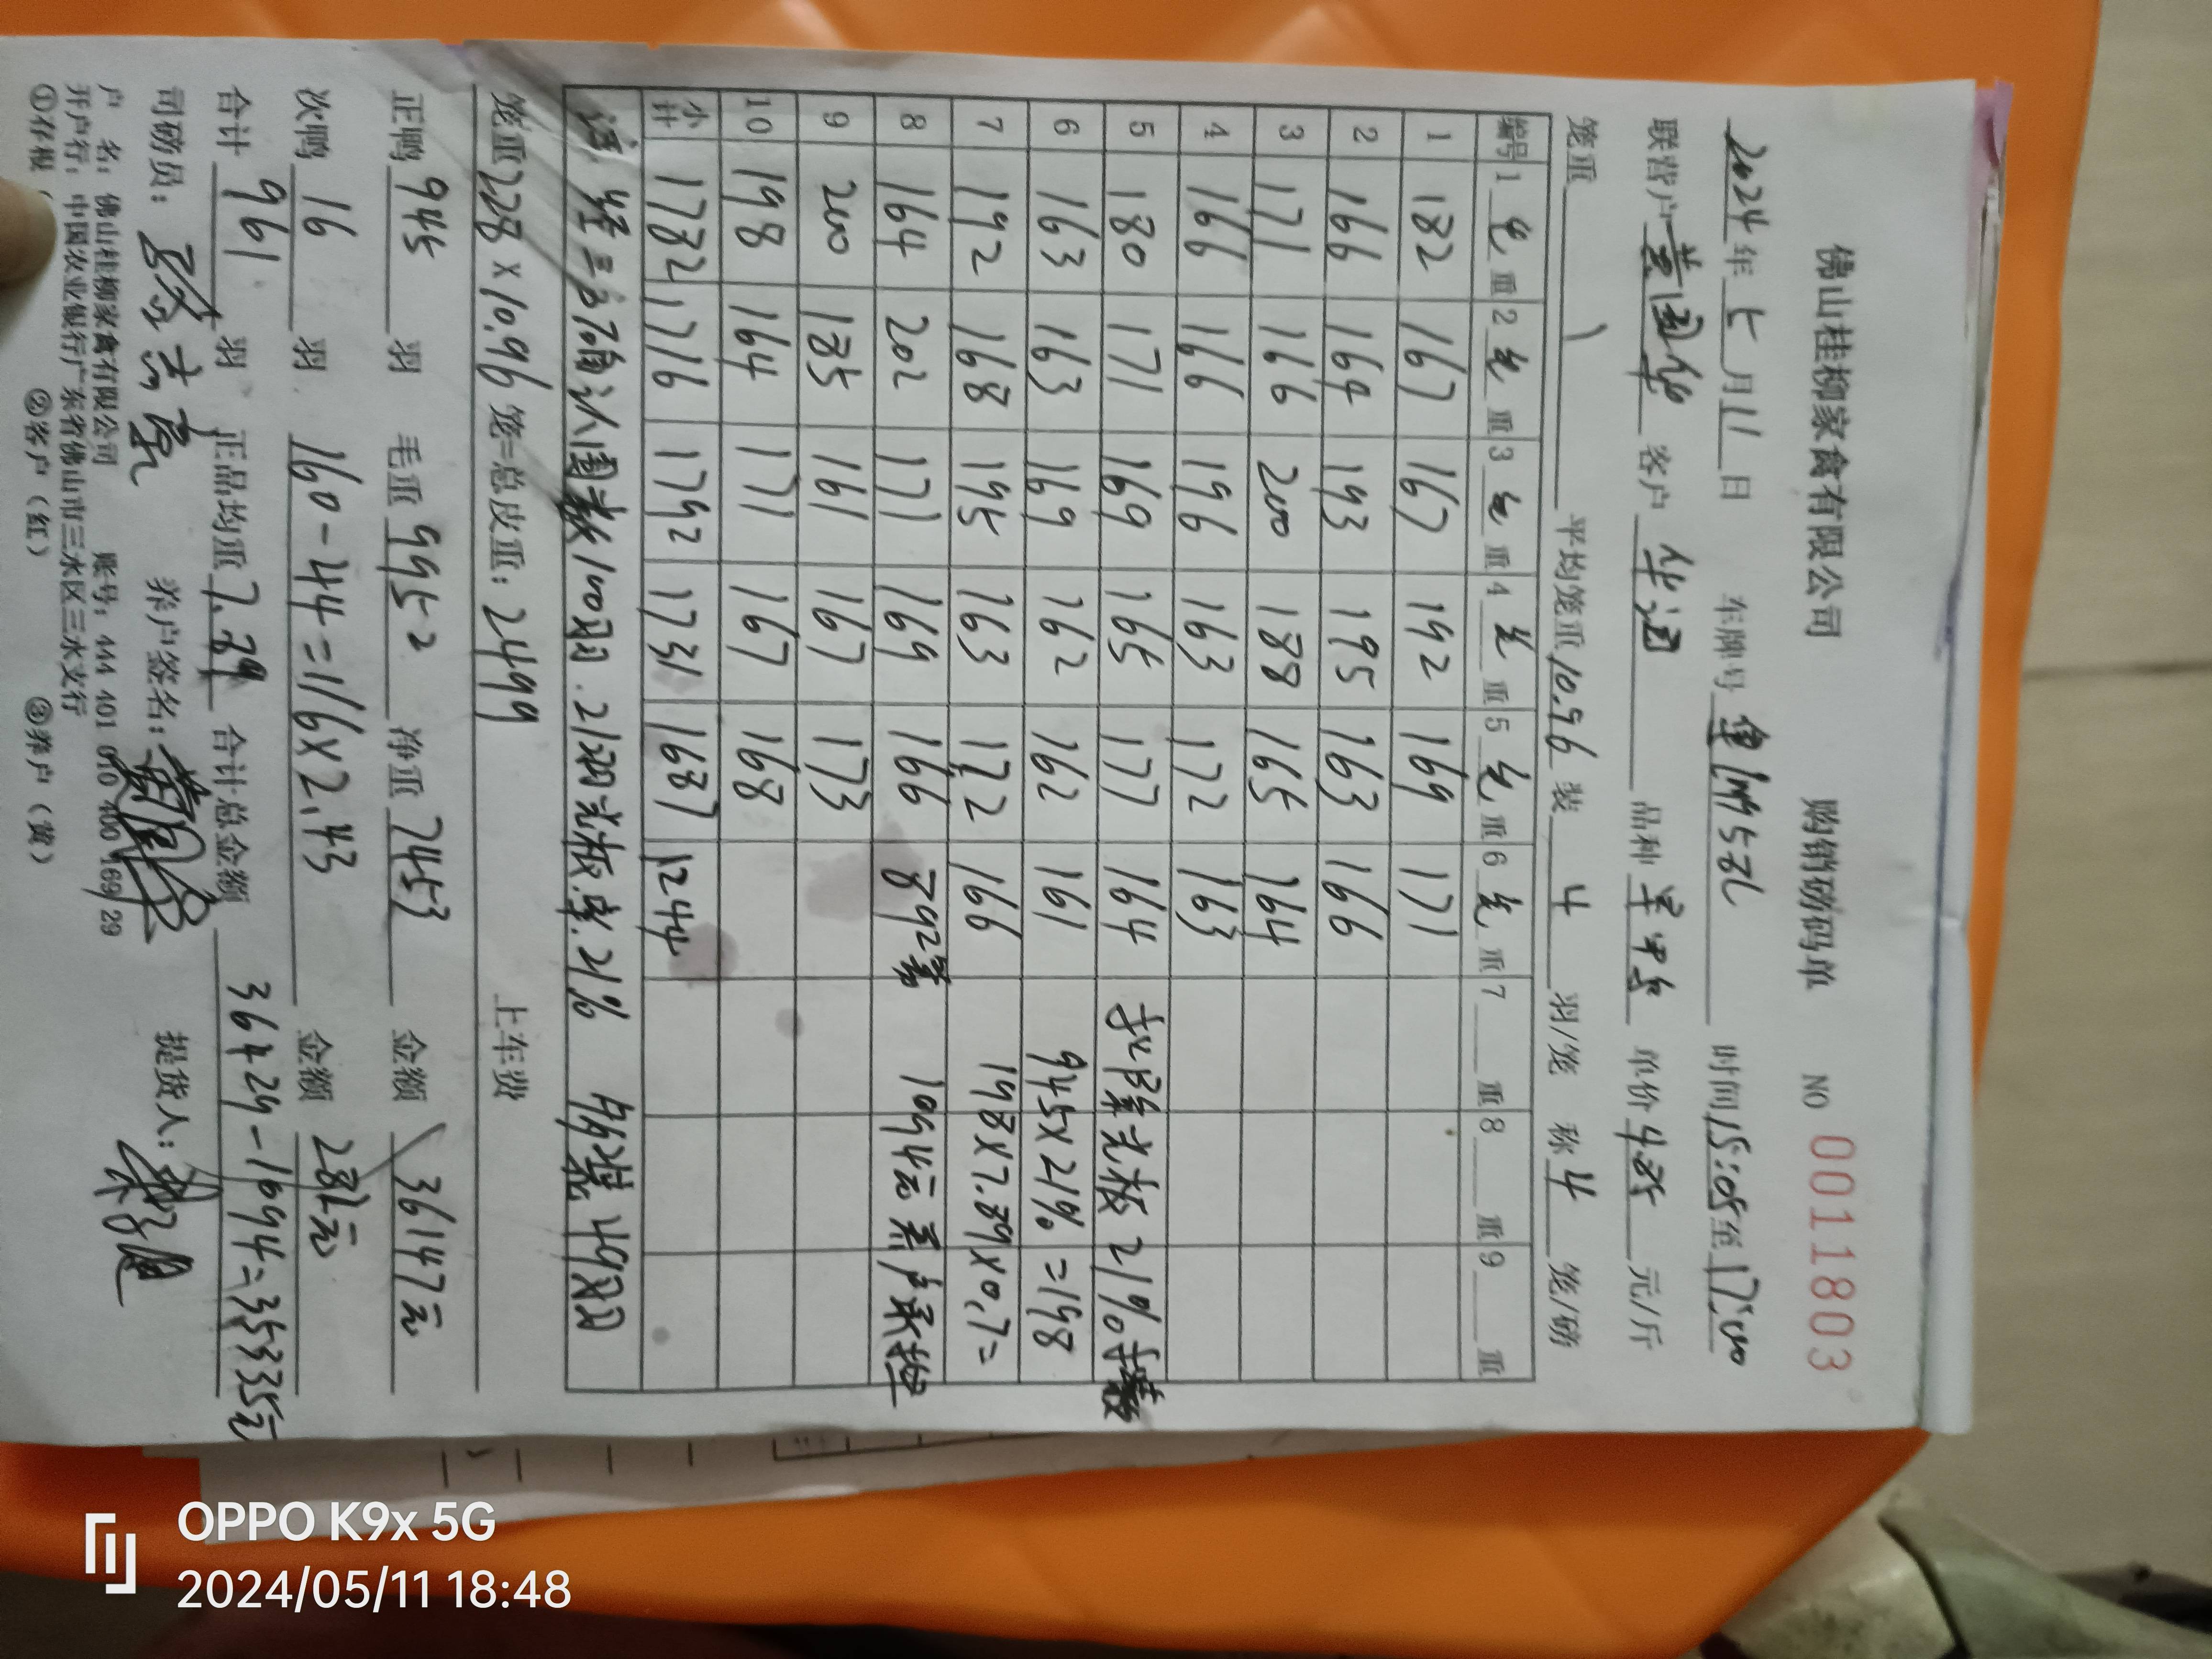 佛山桂柳家禽有限公司 购销磅码单 NO 0011803
2024年5月11日 车牌号 时间15:05至17:00
联营户黄国华 客户 品种 单价4.85元/斤
笼重 平均笼重10.96装4羽/笼 称4笼/磅
编号 1 毛重 2 毛重 3 毛重 4 毛重 5 毛重 6 毛重 7 重 8 重 9 重
1 182 167 167 192 169 171
2 166 164 193 195 163 166
3 171 166 200 188 165 164
4 166 166 196 163 172 163
5 180 171 169 165 177 164 扣降光板21%
6 163 163 169 162 162 161 945×21%=198
7 192 168 195 163 172 166 198×7.89×0.7=
8 164 202 171 169 166 892 1094元 养户承担
9 200 185 161 167 173
10 198 164 171 167 168
小计 1784 1716 1792 1731 1687 1244
注 经三方确认 100羽.21羽光板.率.21%
笼重228×10.96笼=总皮重:2499 上车费
正鸭945羽 毛重9952 净重7453 金额36147元
次鸭16羽 160-44=116×2.43 金额281元
合计961羽 正品均重7.89 合计总金额36429-1094=35335元
司磅员: 养户签名: 提货人:
户 名:佛山桂柳家禽有限公司 账号:444 401 010 400 169 29
开户行:中国农业银行广东省佛山市三水区三水支行
①存根( ②客户(红) ③养户(黄)
OPPO K9x 5G
2024/05/11 18:48